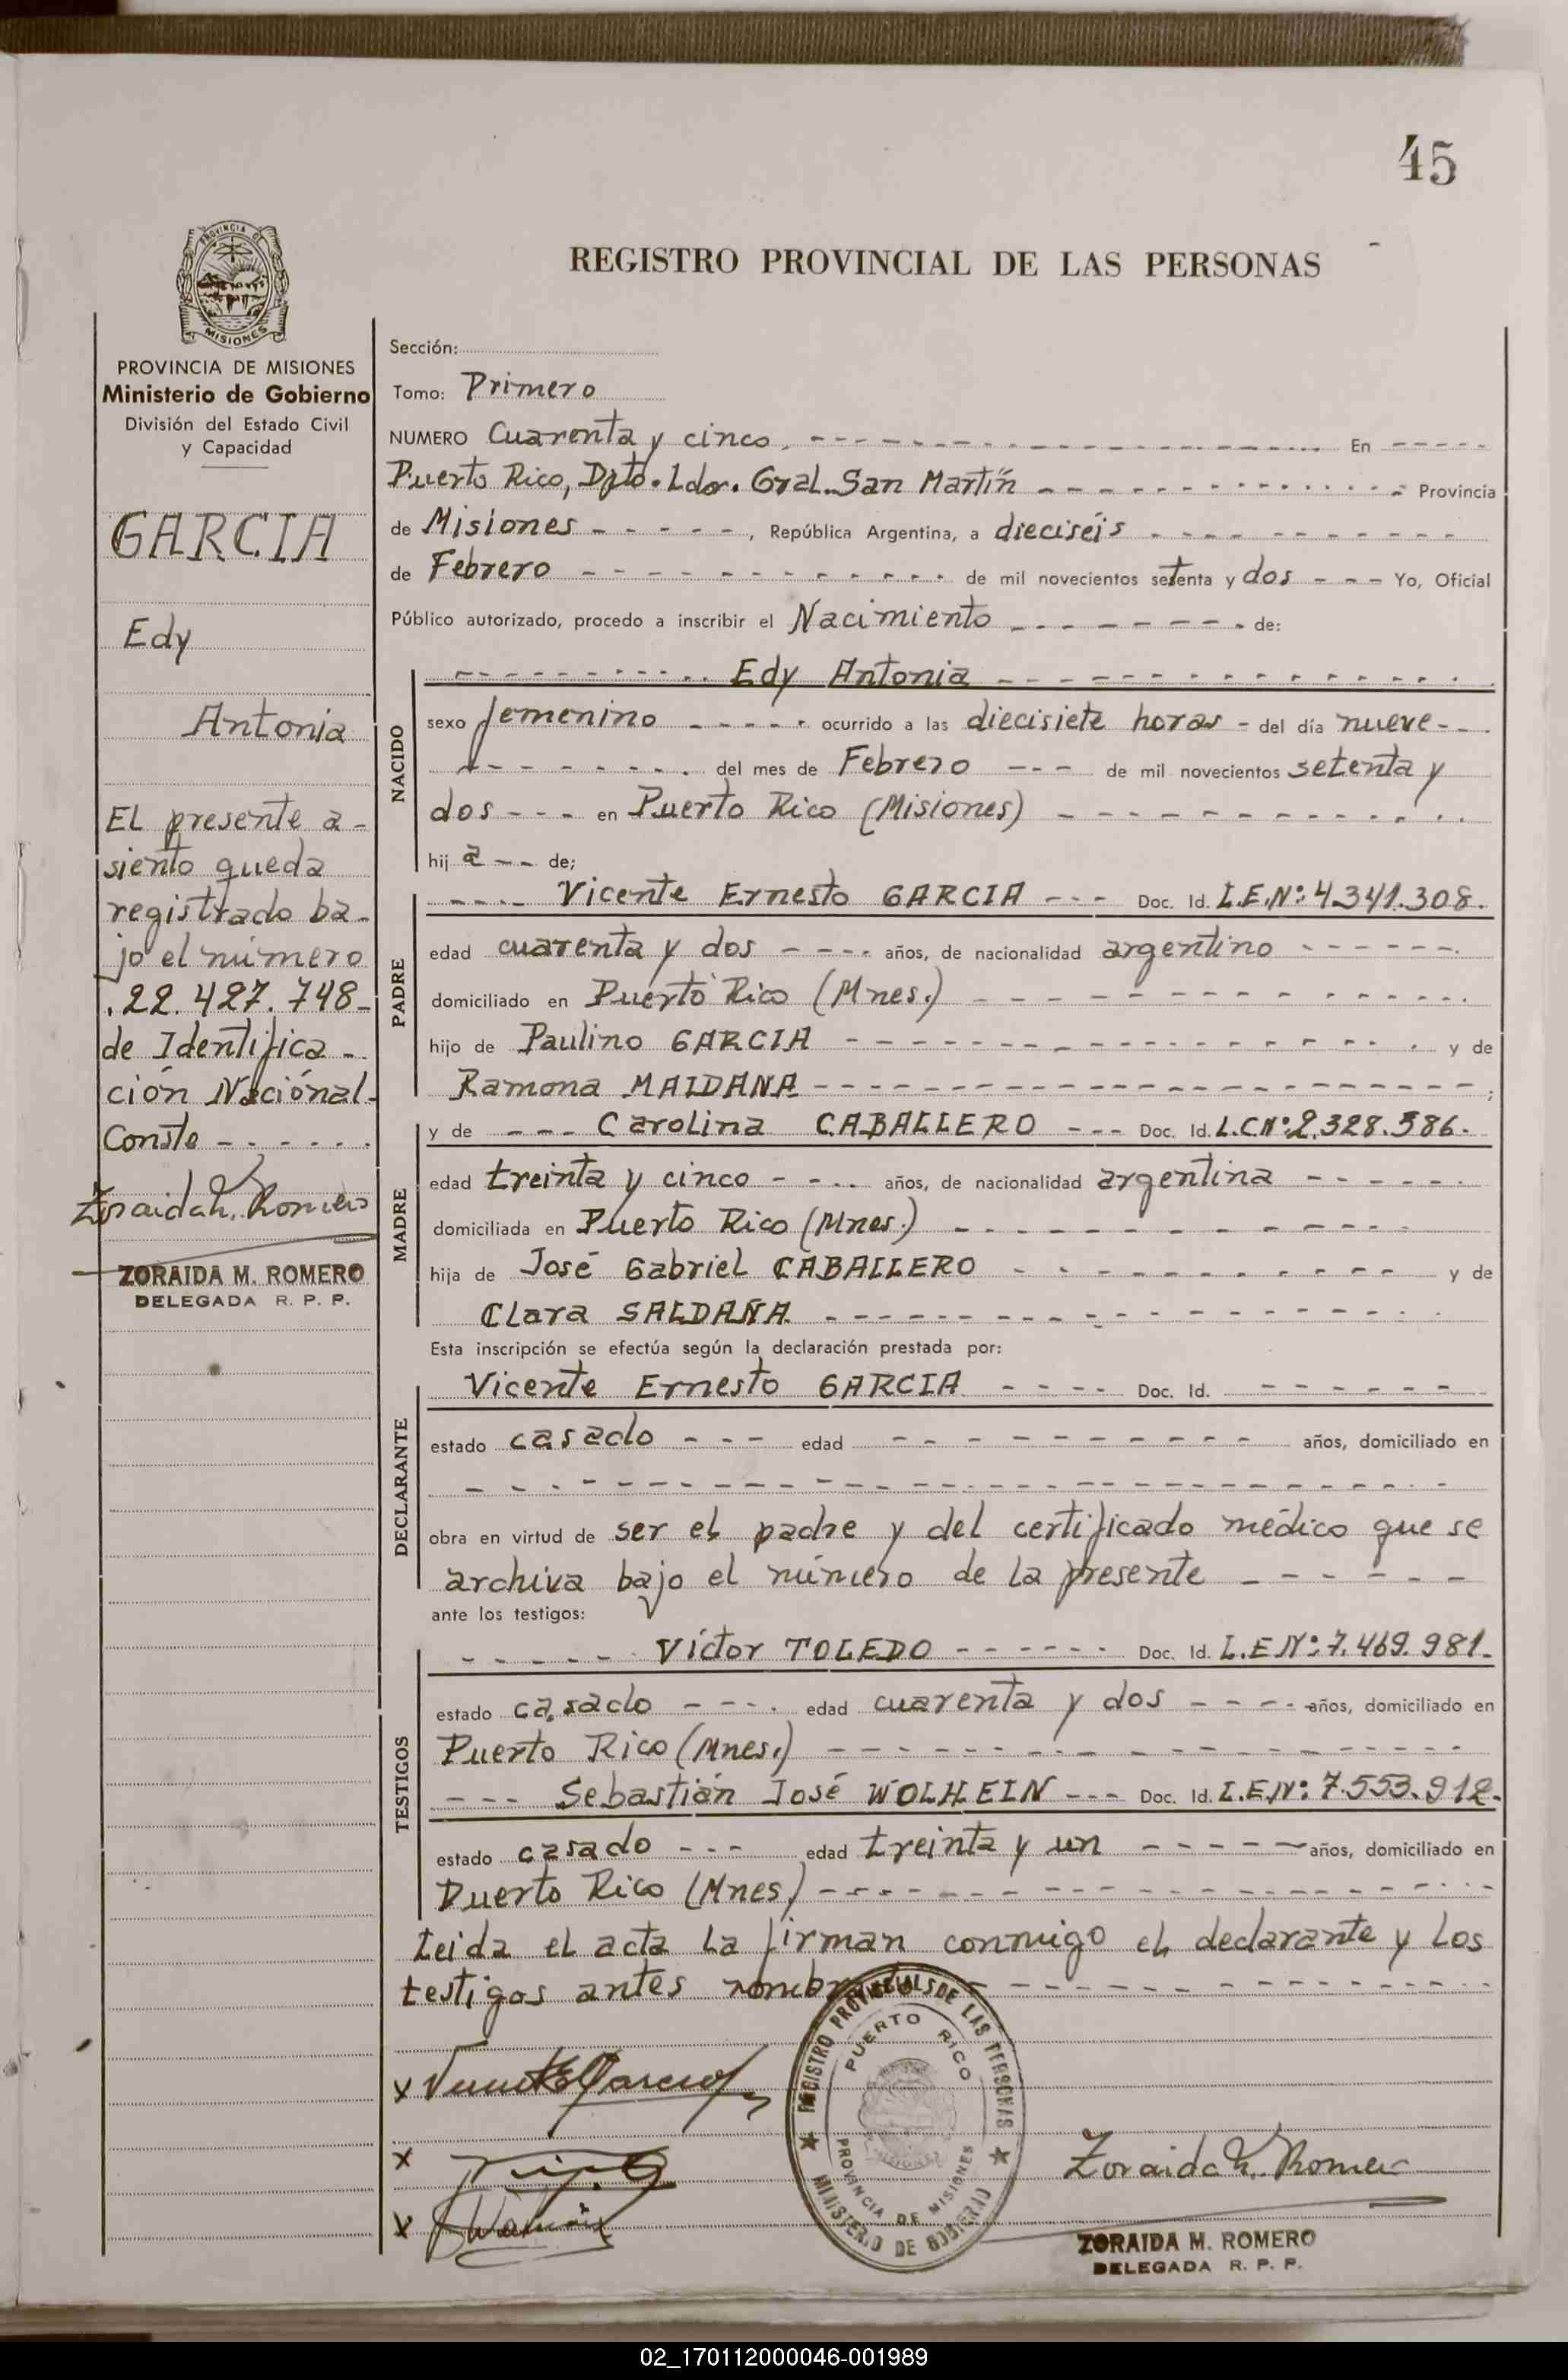 45
PROVINCIA DE
MISIONES
REGISTRO PROVINCIAL DE LAS PERSONAS
PROVINCIA DE MISIONES
Ministerio de Gobierno
División del Estado Civil
y Capacidad
GARCIA
Edy
Antonia
El presente a-
siento queda
registrado ba-
jo el número
.22.427.748-
de Identifica-
ción Naciónal.
Conste - - - - - -
Zoraida M. Romero
ZORAIDA M. ROMERO
DELEGADA R. P. P.
Sección:
Tomo: Primero
NUMERO Cuarenta y cinco. - - - - En - - - -
Puerto Rico, Dpto. Ldor. Gral. San Martín - - - - Provincia
de Misiones - - - - -, República Argentina, a dieciséis - - - -
de Febrero - - - - de mil novecientos setenta y dos - - - Yo, Oficial
Público autorizado, procedo a inscribir el Nacimiento - - - - de:
NACIDO
- - - - Edy Antonia - - - -
sexo femenino - - - - ocurrido a las diecisiete horas - del día nueve - - -
- - - - del mes de Febrero - - - de mil novecientos setenta y
dos - - - en Puerto Rico (Misiones) - - - -
hij a - - de;
PADRE
- - - - Vicente Ernesto GARCIA - - - Doc. Id. L.E.Nº: 4.341.308.
edad cuarenta y dos - - - - años, de nacionalidad argentino - - - -
domiciliado en Puerto Rico (Mnes.) - - - -
hijo de Paulino GARCIA - - - - y de
Ramona MAIDANA - - - - ;
MADRE
y de - - - Carolina CABALLERO - - - Doc. Id. L.C.Nº: 2.328.586.
edad treinta y cinco - - - - años, de nacionalidad argentina - - - -
domiciliada en Puerto Rico (Mnes.) - - - -
hija de José Gabriel CABALLERO - - - - y de
Clara SALDAÑA. - - - -
Esta inscripción se efectúa según la declaración prestada por:
DECLARANTE
Vicente Ernesto GARCIA - - - - Doc. Id. - - - -
estado casado - - - edad - - - - años, domiciliado en
- - - -
obra en virtud de ser el padre y del certificado médico que se
archiva bajo el número de la presente - - - -
ante los testigos:
TESTIGOS
- - - - Víctor TOLEDO - - - - Doc. Id. L.E.Nº: 7.469.981.
estado casado - - - - edad cuarenta y dos - - - - años, domiciliado en
Puerto Rico (Mnes.) - - - -
- - - Sebastián José WOLHEIN - - - Doc. Id. L.E.Nº: 7.553.912.
estado casado - - - edad treinta y un - - - - años, domiciliado en
Puerto Rico (Mnes) - - - -
Leida el acta la firman conmigo el declarante y los
testigos antes nombrados - - - -
REGISTRO PROVINCIAL DE LAS PERSONAS
PUERTO RICO
PROVINCIA DE MISIONES
MINISTERIO DE GOBIERNO
x Vicente E Garcia
x
x
Zoraida M. Romero
ZORAIDA M. ROMERO
DELEGADA R. P. P.
02_170112000046-001989